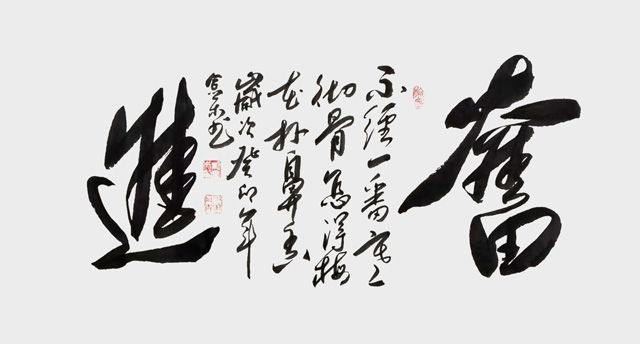 奮
不經一番寒
彻骨怎得梅
花扑鼻香
歲次癸卯年
书
進